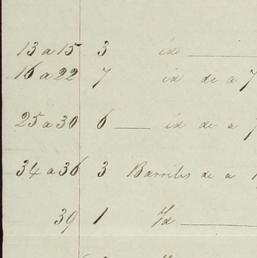 13 a 15 3 id
16 a 22 7 id de a 7
25 a 30 6 id de a
34 a 36 3 Barriles de a
39 1 Id